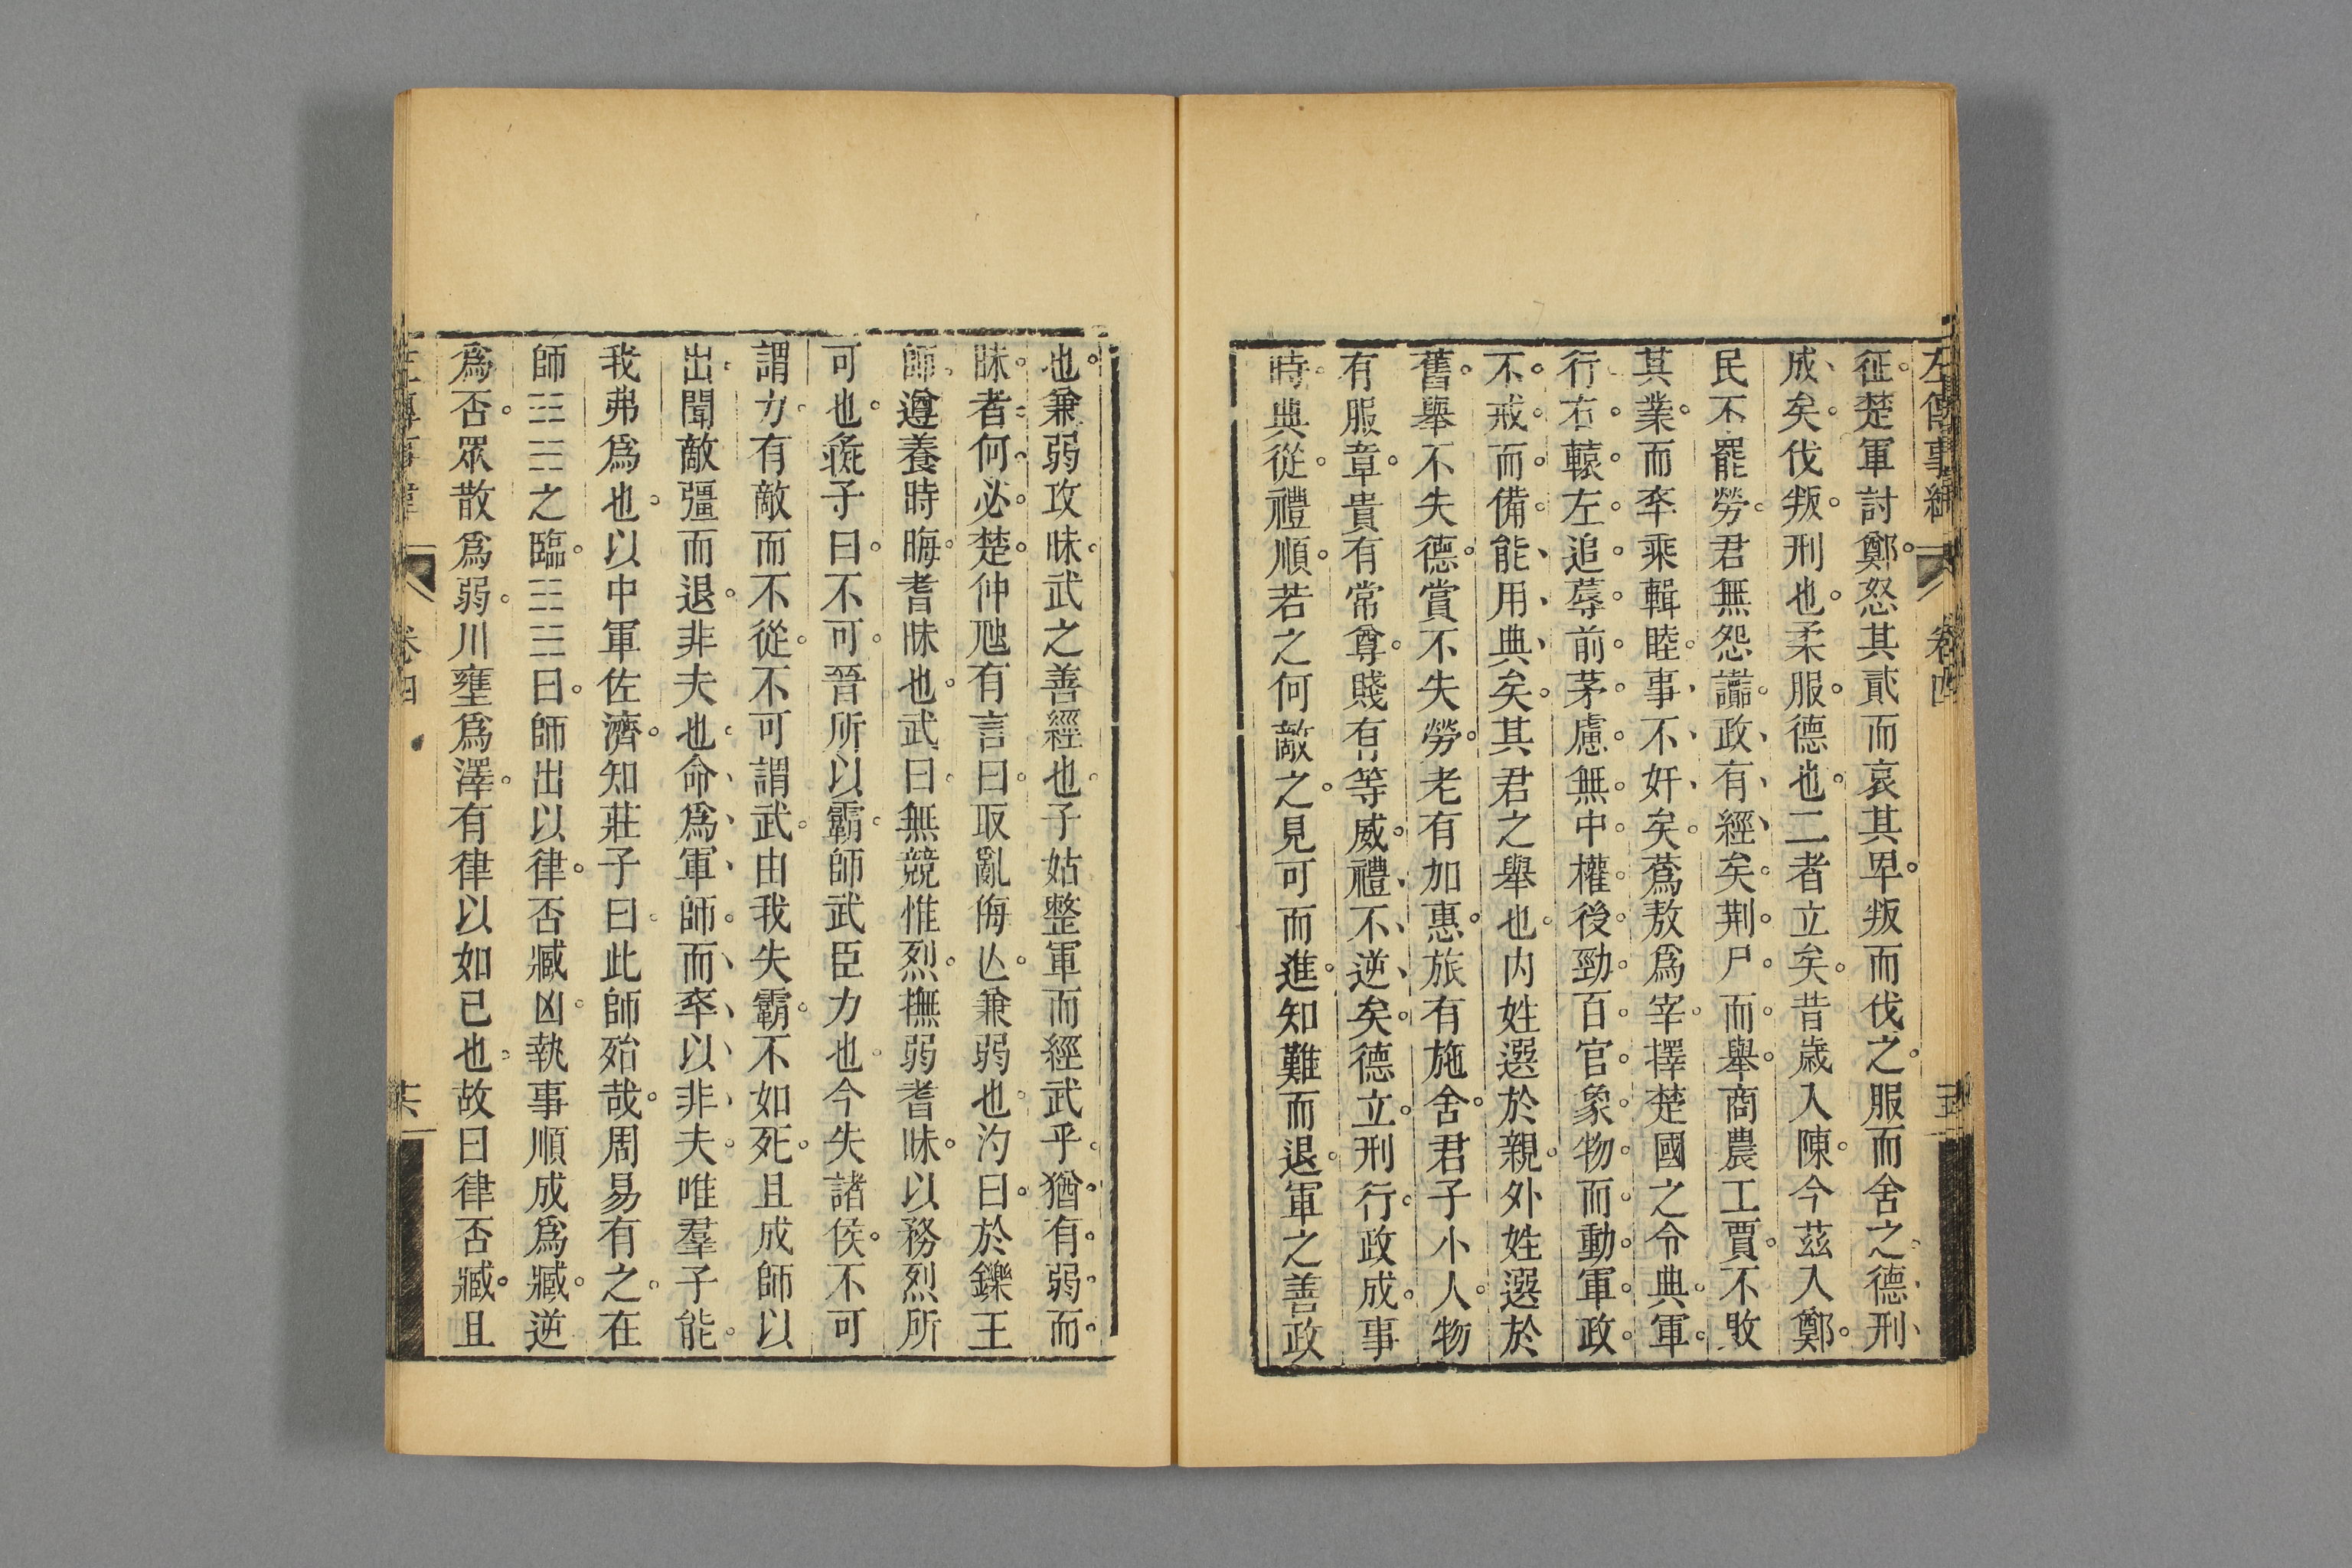 左傳事緯 卷四
征楚軍討鄭怒其貳而哀其卑叛而伐之服而舍之德刑
成矣伐叛刑也柔服德也二者立矣昔歲入陳今茲入鄭
民不罷勞君無怨讟政有經矣荆尸而舉商農工賈不敗
其業而卒乘輯睦事不奸矣蔿敖爲宰擇楚國之令典軍
行右轅左追蓐前茅慮無中權後勁百官象物而動軍政
不戒而備能用典矣其君之舉也内姓選於親外姓選於
舊舉不失德賞不失勞老有加惠旅有施舍君子小人物
有服章貴有常尊賤有等威禮不逆矣德立刑行政成事
時典從禮順若之何敵之見可而進知難而退軍之善政
也兼弱攻昧武之善經也子姑整軍而經武乎猶有弱而
昧者何必楚仲虺有言曰取亂侮亾兼弱也汋曰於鑠王
師遵養時晦耆昧也武曰無競惟烈撫弱耆昧以務烈所
可也彘子曰不可晉所以霸師武臣力也今失諸侯不可
謂力有敵而不從不可謂武由我失霸不如死且成師以
出聞敵彊而退非夫也命爲軍師而卒以非夫唯羣子能
我弗爲也以中軍佐濟知莊子曰此師殆哉周易有之在
師☷☵之臨☷☱曰師出以律否臧凶執事順成爲臧逆
爲否眾散爲弱川壅爲澤有律以如已也故曰律否臧且
左傳事緯 卷四 共